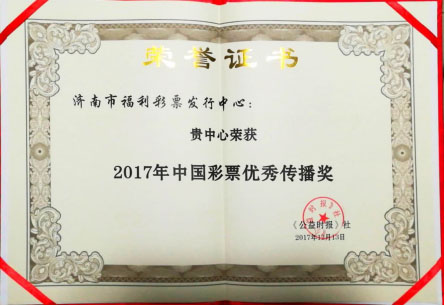 荣誉证书
济南市福利彩票发行中心：
贵中心荣获
2017年中国彩票优秀传播奖
《公益时报》社
2017年12月13日